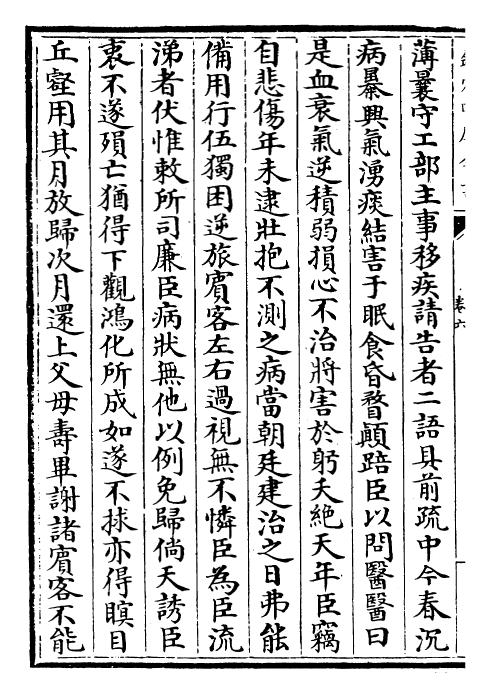 薄曩守工部主事移疾請告者二語具前疏中今春沉
病暴興氣湧痰結害于眠食昏瞀顛踣臣以問醫醫曰
是血衰氣逆積弱損心不治將害於躬夭絶天年臣竊
自悲傷年未逮壯抱不測之病當朝廷建治之日弗能
備用行伍獨困逆旅賓客左右過視無不憐臣為臣流
涕者伏惟敕所司廉臣病狀無他以例免歸倘天誘臣
衷不遂殞亡猶得下觀鴻化所成如遂不救亦得瞑目
丘壑用其月放歸次月還上父母壽畢謝諸賓客不能
卷六